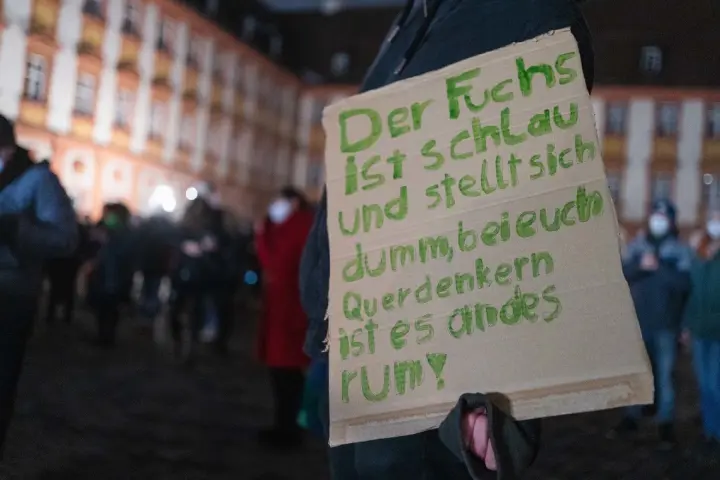 Der Fuchs
ist schlau
und stellt sich
dumm, bei euch
Querdenkern
ist es andes
rum!